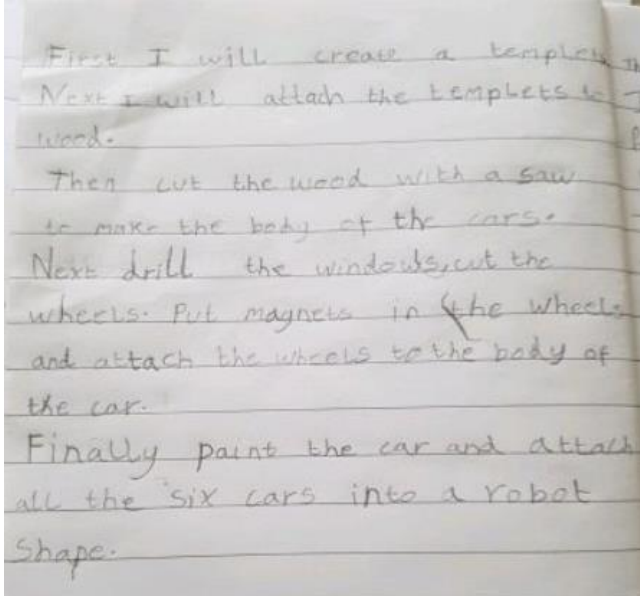 First I will create a templets
Next I will attach the templets to
wood.
Then cut the wood with a saw
to make the body of the cars.
Next drill the windows, cut the
wheels. Put magnets in the wheels
and attach the wheels to the body of
the car.
Finally paint the car and attach
all the six cars into a robot
shape.